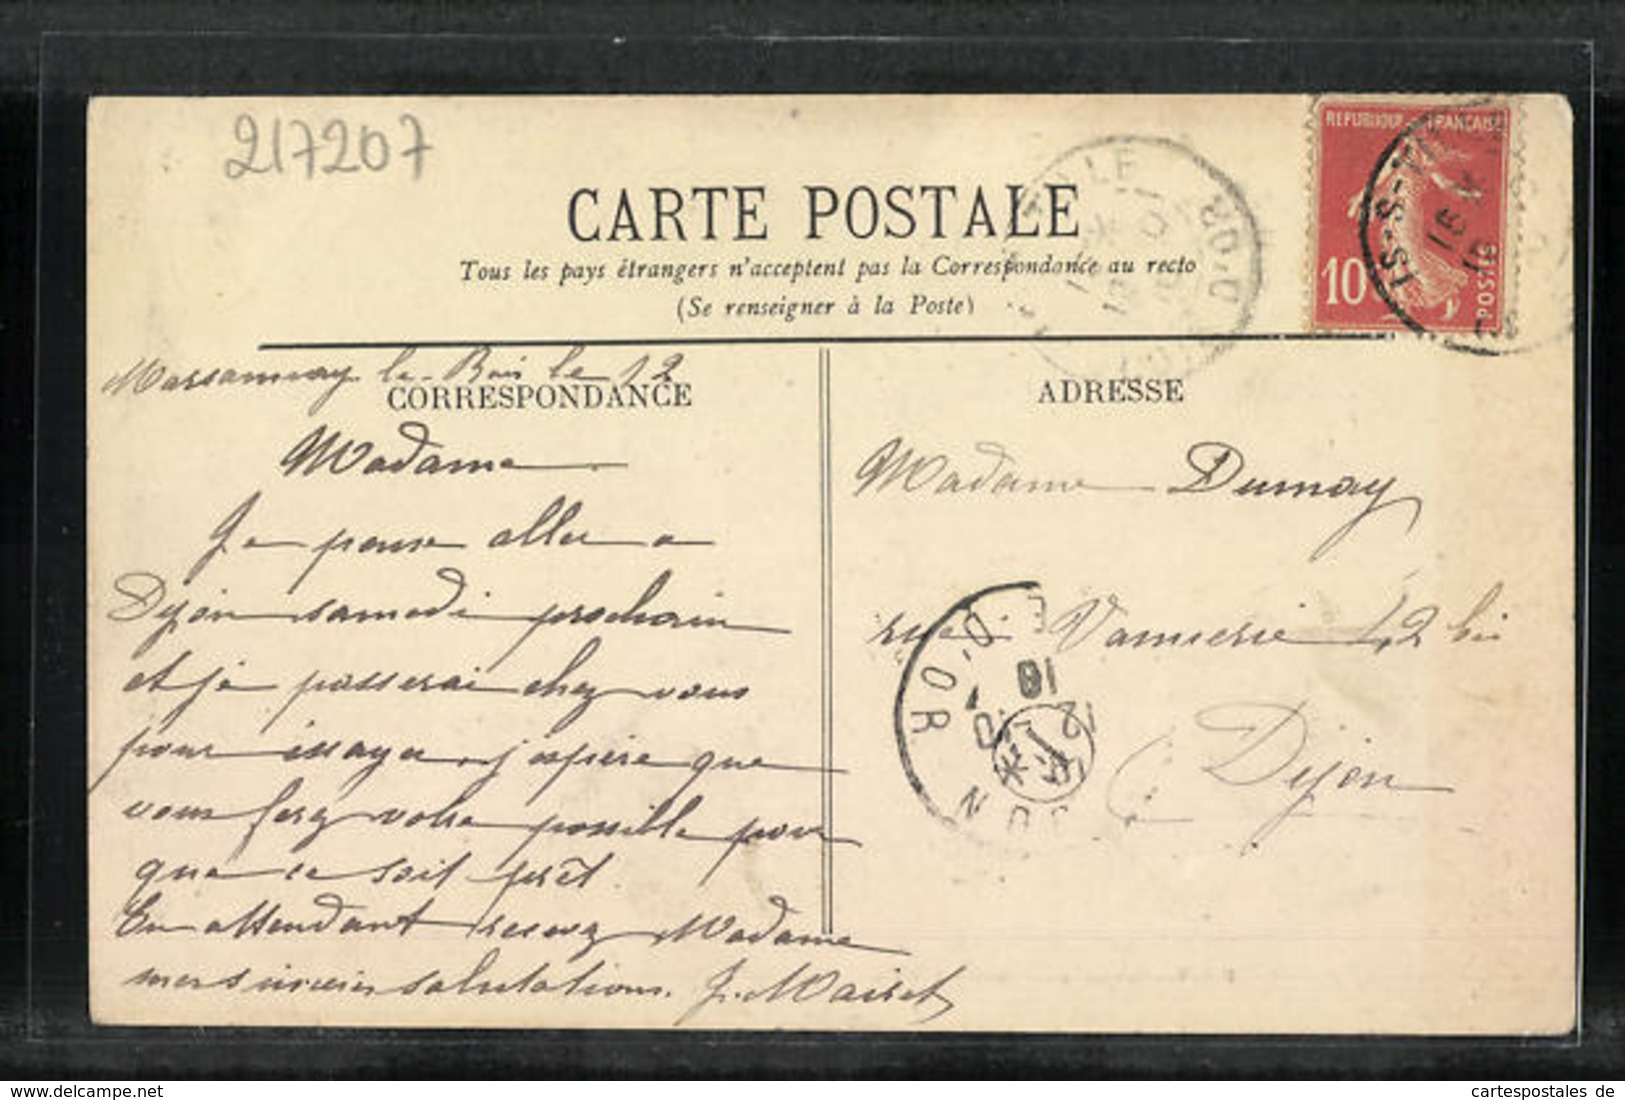 217207
CARTE POSTALE
Tous les pays étrangers n'acceptent pas la Correspondance au recto
(Se renseigner à la Poste)
REPUBLIQUE FRANÇAISE
10
POSTES
IS-S-TILLE
Marsannay le-Bois le 12
CORRESPONDANCE
Madame
Je pense aller a
Dijon samedi prochain
et je passerai chez vous
pour essayer. j'espère que
vous ferez votre possible pour
que ce soit prêt.
En attendant recevez Madame
mes sincères salutations. J. Mairet
ADRESSE
Madame Dumay
rue Vannerie 42 bis
Dijon
DIJON
CÔTE D'OR
www.delcampe.net
cartespostales de